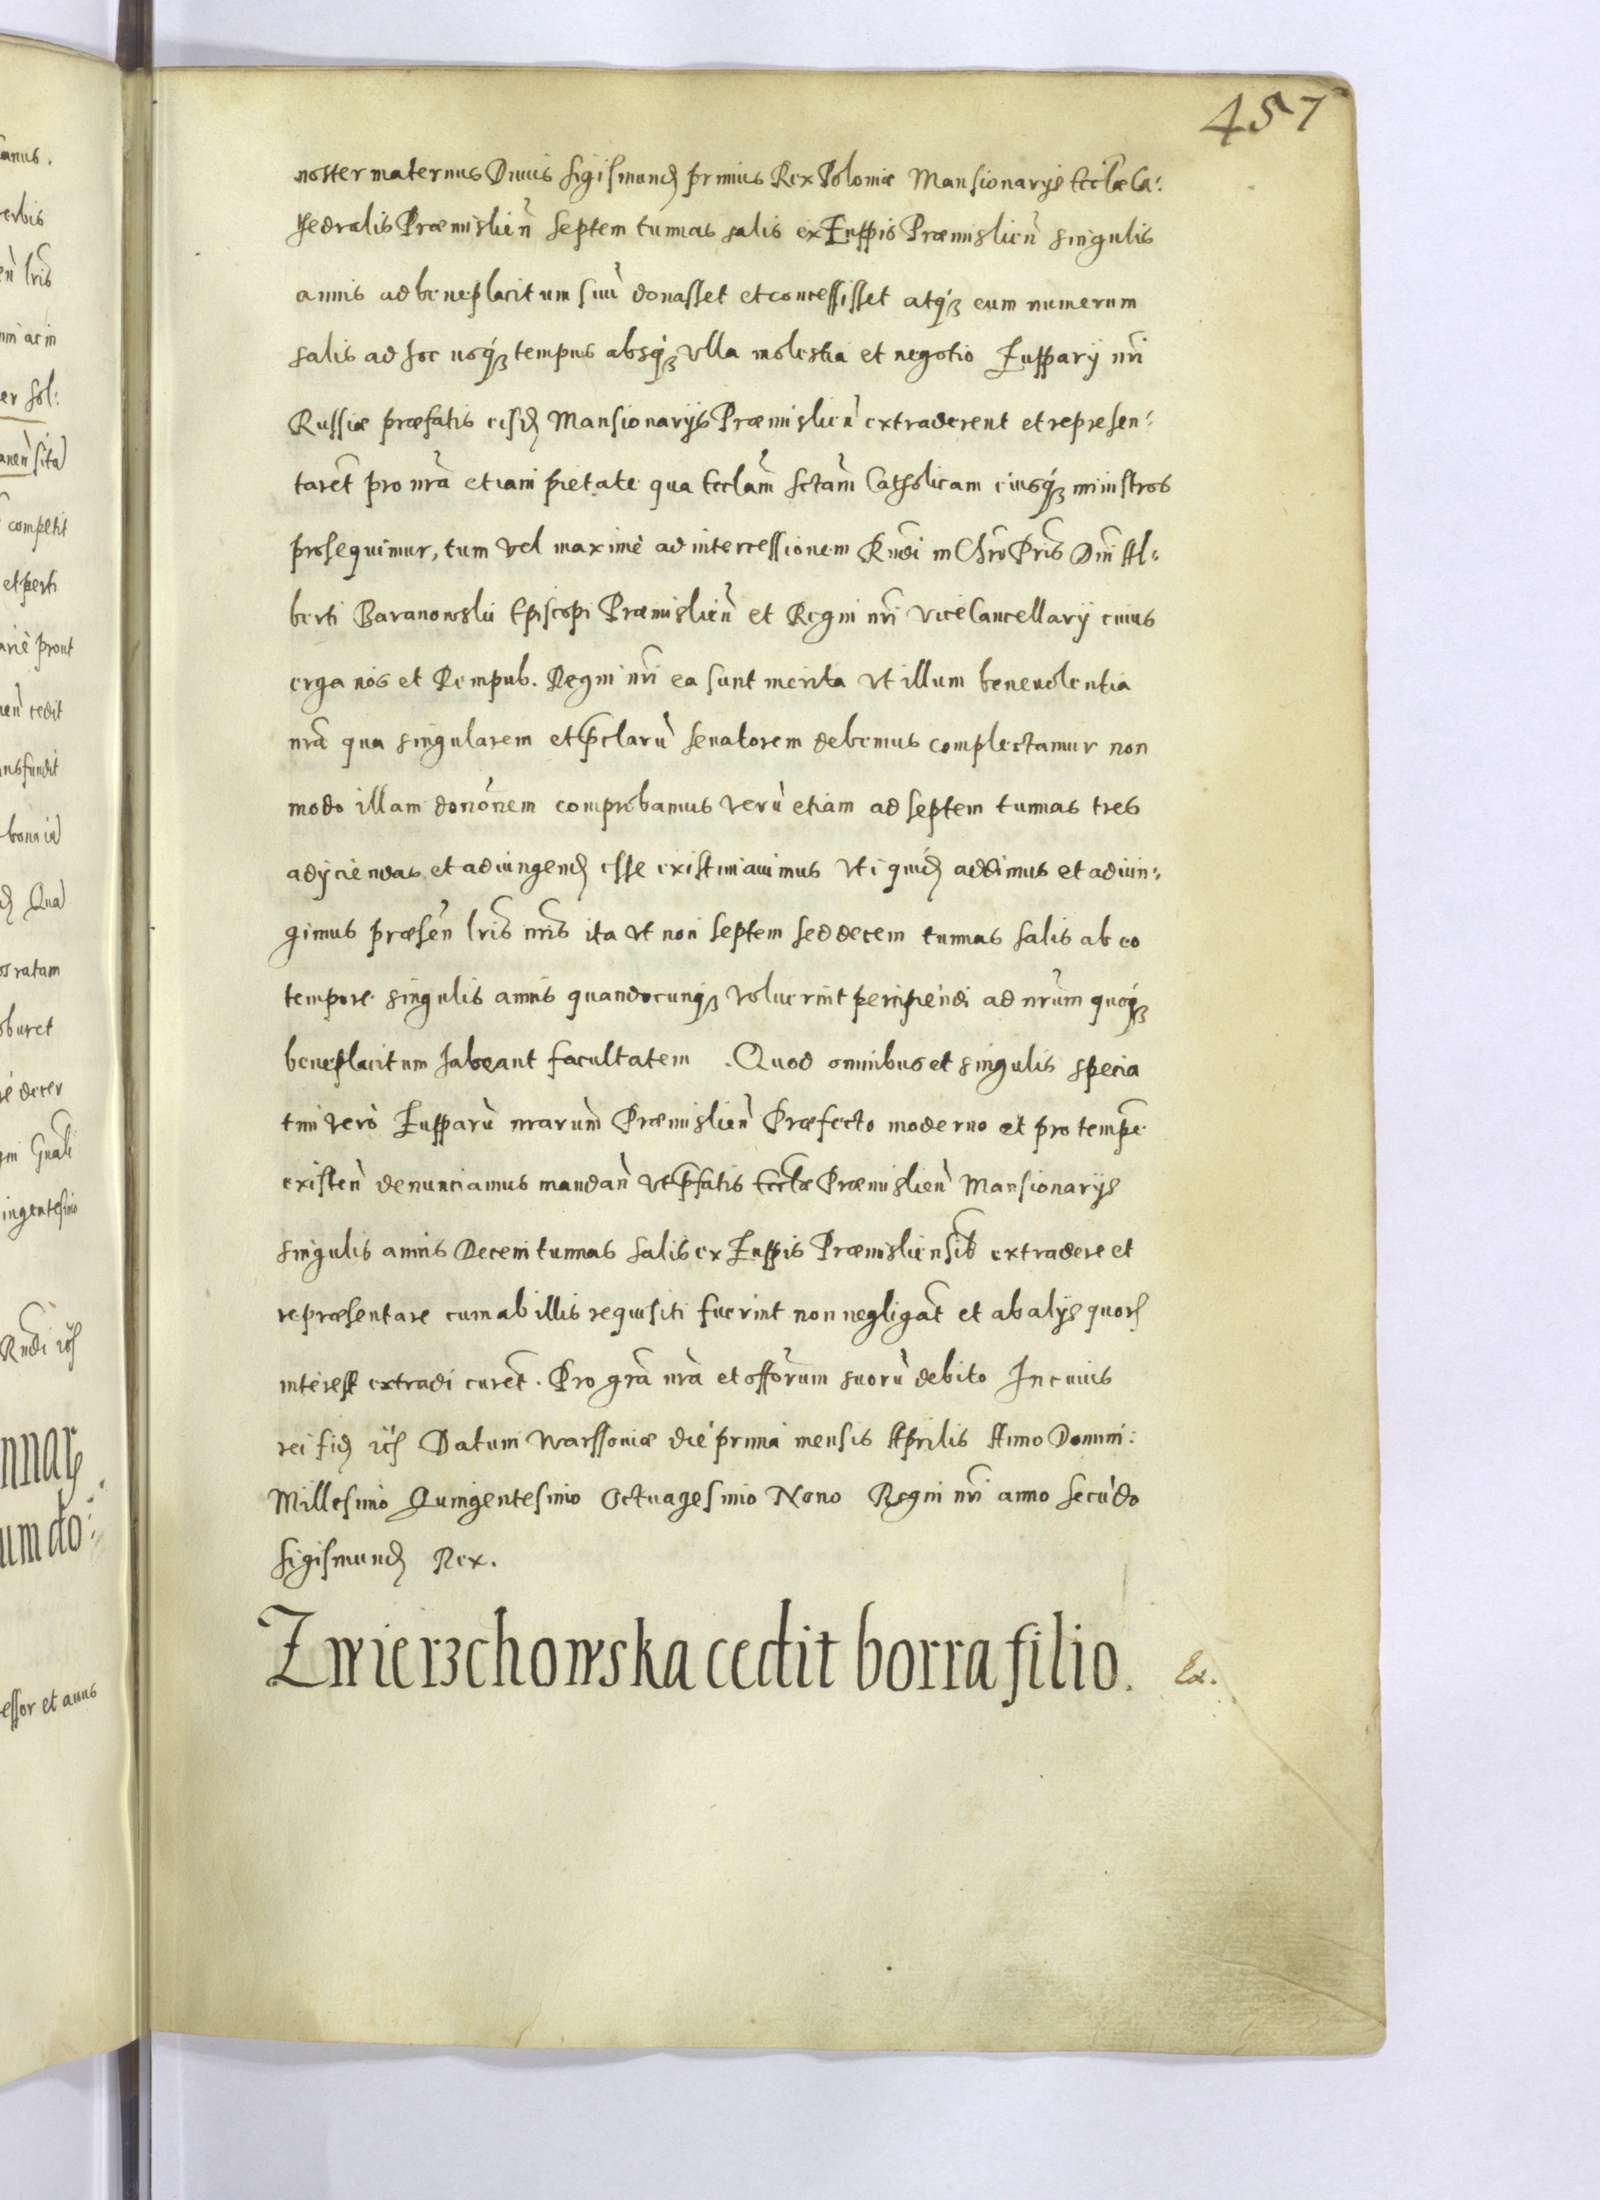 457
noster maternus Diuus Sigismundq primus Rex Poloniæ Mansionarijs Eccl̃æ Ca:
thedralis Præmislien̄ septem tunnas salis ex Zuppis Præmislien̄ singulis
annis ad beneplacitum suū donasset et concessisset atq́ꝫ eum numerum
salis ad hoc usq́ꝫ tempus absq́ꝫ vlla molestia et negotio Zupparij nr̃i
Russiæ præfatis eisdq Mansionarijs Præmislien̄ extraderent et represen:
tarent̃ pro nr̃a etiam pietate qua Eccl̃am sctām Catholicam eiusq́ꝫ ministros
prosequimur, tum vel maximè ad intercessionem Rndi in Chro Pris Dni Al:
berti Baranowskii Episcopi Præmislien̄ et Regni nr̃i ViceCancellarij cuius
erga nos et Rempub. Regni nr̃i ea sunt merita vt illum beneuolentia
nr̃a qua singularem et p̄clarū senatorem debemus complectamur non
modo illam donõnem comprobamus verū etiam ad septem tunnas tres
adijciendas et adiungendq esse existimauimus vti quidq addimus et adiun:
gimus præsen̄ lris nris ita vt non septem sed decem tunnas salis ab eo
tempore singulis annis quandocunqꝫ voluerint percipiendi ad nr̃um quoq́ꝫ
beneplacitum habeant facultatem. Quod omnibus et singulis specia
tim verò Zupparū nrarum Præmislien̄ Præfecto moderno et pro tempe
existen̄ denunciamus mandan̄ vt p̄fatis Eccl̃æ Præmislien̄ Mansionarijs
singulis annis Decem tunnas salis ex Zuppis Præmisliensib extradere et
repræsentare cum ab illis requisiti fuerint non negligant̃ et ab alijs quorq
interest extradi curent̃. Pro gr̃a nr̃a et offõrum suorū debito In cuius
rei fidq etcq Datum Warssouiæ die prima mensis Aprilis Anno Domini:
Millesimo Quingentesimo Octuagesimo Nono Regni nr̃i anno secūdo
Sigismundq Rex.
Zwierzchowska cedit borra filio. Ex.